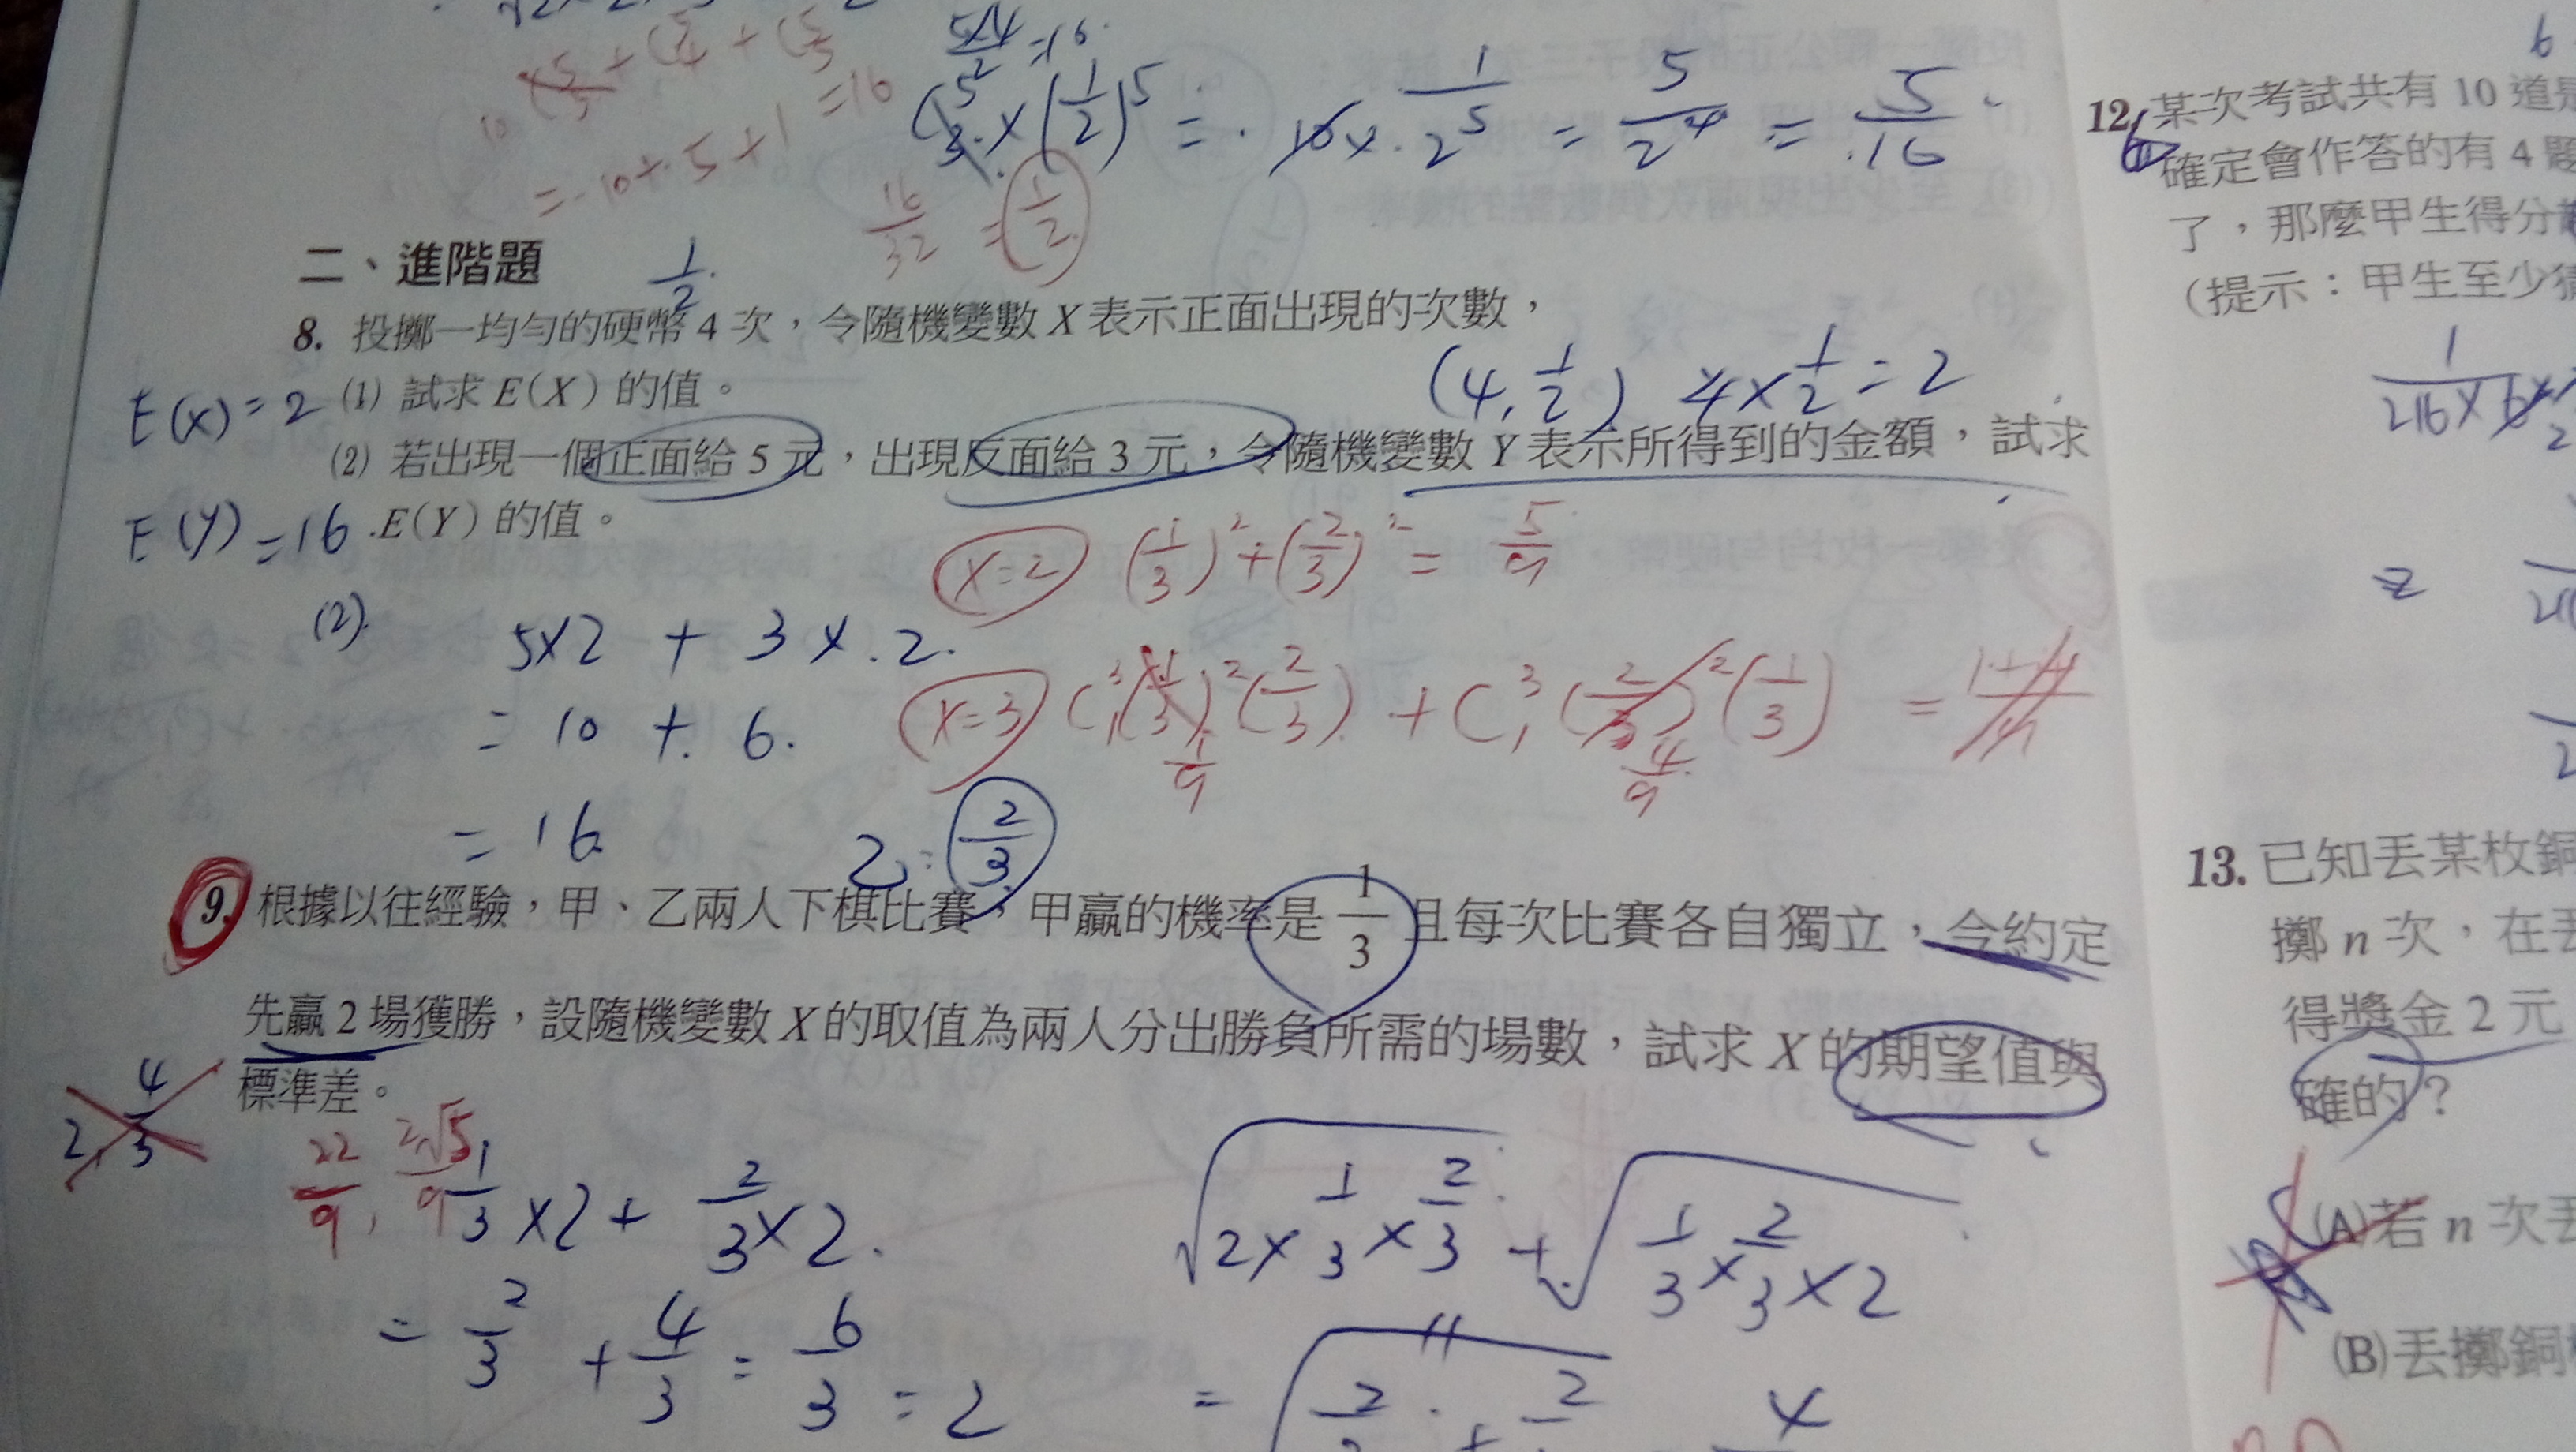 10 + 5 + 1 = 16
× (1/2)^5 = 10 × 1/2^5 = 5/2^4 = 5/16
16/32 = 1/2
二、進階題
1/2
8. 投擲一均勻的硬幣 4 次,令隨機變數 X 表示正面出現的次數,
(4, 1/2) 4×1/2=2
E(x)=2 (1) 試求 E(X) 的值。
(2) 若出現一個正面給 5 元,出現反面給 3 元,令隨機變數 Y 表示所得到的金額,試求
E(y)=16 E(Y) 的值。
x=2 (1/3)^2+(2/3)^2= 5/9
(2). 5×2 + 3×2.
= 10 + 6.
= 16
x=3 C^3_1 (1/3)^2 (2/3) + C^3_1 (2/3)^2 (1/3) =
1/9 4/9
乙: 2/3
9. 根據以往經驗,甲、乙兩人下棋比賽,甲贏的機率是 1/3 且每次比賽各自獨立,今約定
先贏 2 場獲勝,設隨機變數 X 的取值為兩人分出勝負所需的場數,試求 X 的期望值與
標準差。
2, 4/3
22/9, 2√5/9
1/3 ×2 + 2/3 ×2.
= 2/3 + 4/3 = 6/3 = 2
√(2×1/3×2/3) + √(1/3×2/3×2)
12. 某次考試共有 10 道
確定會作答的有 4 題
了,那麼甲生得分
(提示:甲生至少
13. 已知丟某枚
擲 n 次,在
得獎金 2 元
確的?
(A) 若 n 次
(B) 丟擲銅